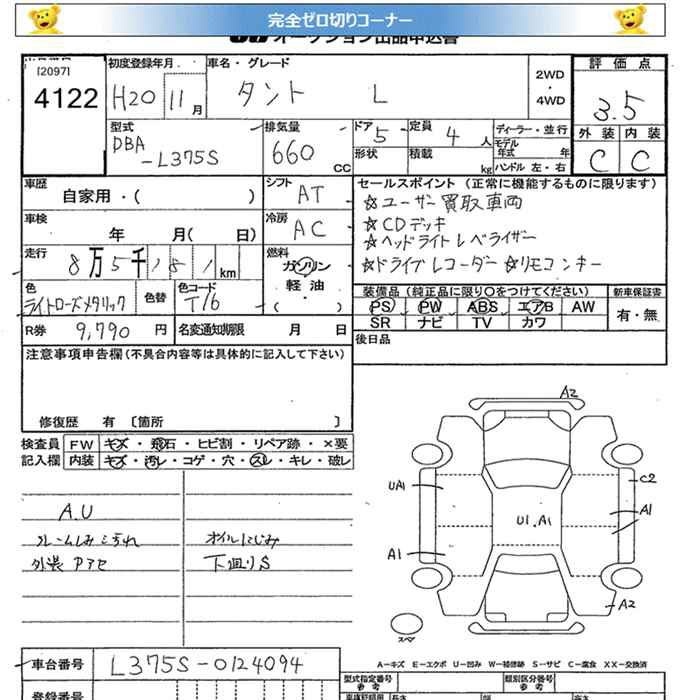 完全ゼロ切りコーナー
オークション出品申込書
[2097]
4122
初度登録年月
H20 11月
車名・グレード
タント L
2WD
・
4WD
評価点
3.5
外装 内装
C C
型式
DBA
-L375S
排気量
660 CC
ドア 5
形状
定員 4 人
積載 kg
ディーラー・並行
モデル年式 年
ハンドル 左・右
車歴
自家用・( )
シフト AT
セールスポイント (正常に機能するものに限ります)
☆ユーザー買取車両
☆CDデッキ
☆ヘッドライトレベライザー
☆ドライブレコーダー ☆リモコンキー
車検
年 月( 日)
冷房 AC
走行
8万5千181km
燃料
ガソリン
軽油
( )
色
ライトローズメタリック
色替
色コード
T16
装備品 (純正品に限り○をつけてください)
PS PW ABS エアB AW
SR ナビ TV カワ
新車保証書
有・無
R券 9,790 円
名変通知期限 月 日
後日品
注意事項申告欄(不具合内容等は具体的に記入して下さい)
修復歴 有 〔箇所 〕
検査員
記入欄
FW キズ・飛石・ヒビ割・リペア跡・×要
内装 キズ・汚レ・コゲ・穴・スレ・キレ・破レ
A.U
フレームしみこすれ
外装 Pアセ
オイルにじみ
下廻りS
A2
UA1
C2
U1.A1
A1
A1
A2
スペア
A−キズ E−エクボ U−凹み W−補修跡 S−サビ C−腐食 XX−交換済
車台番号 L375S-0124094
登録番号
型式指定番号
参考
類別区分番号
参考
長さ
幅
高さ